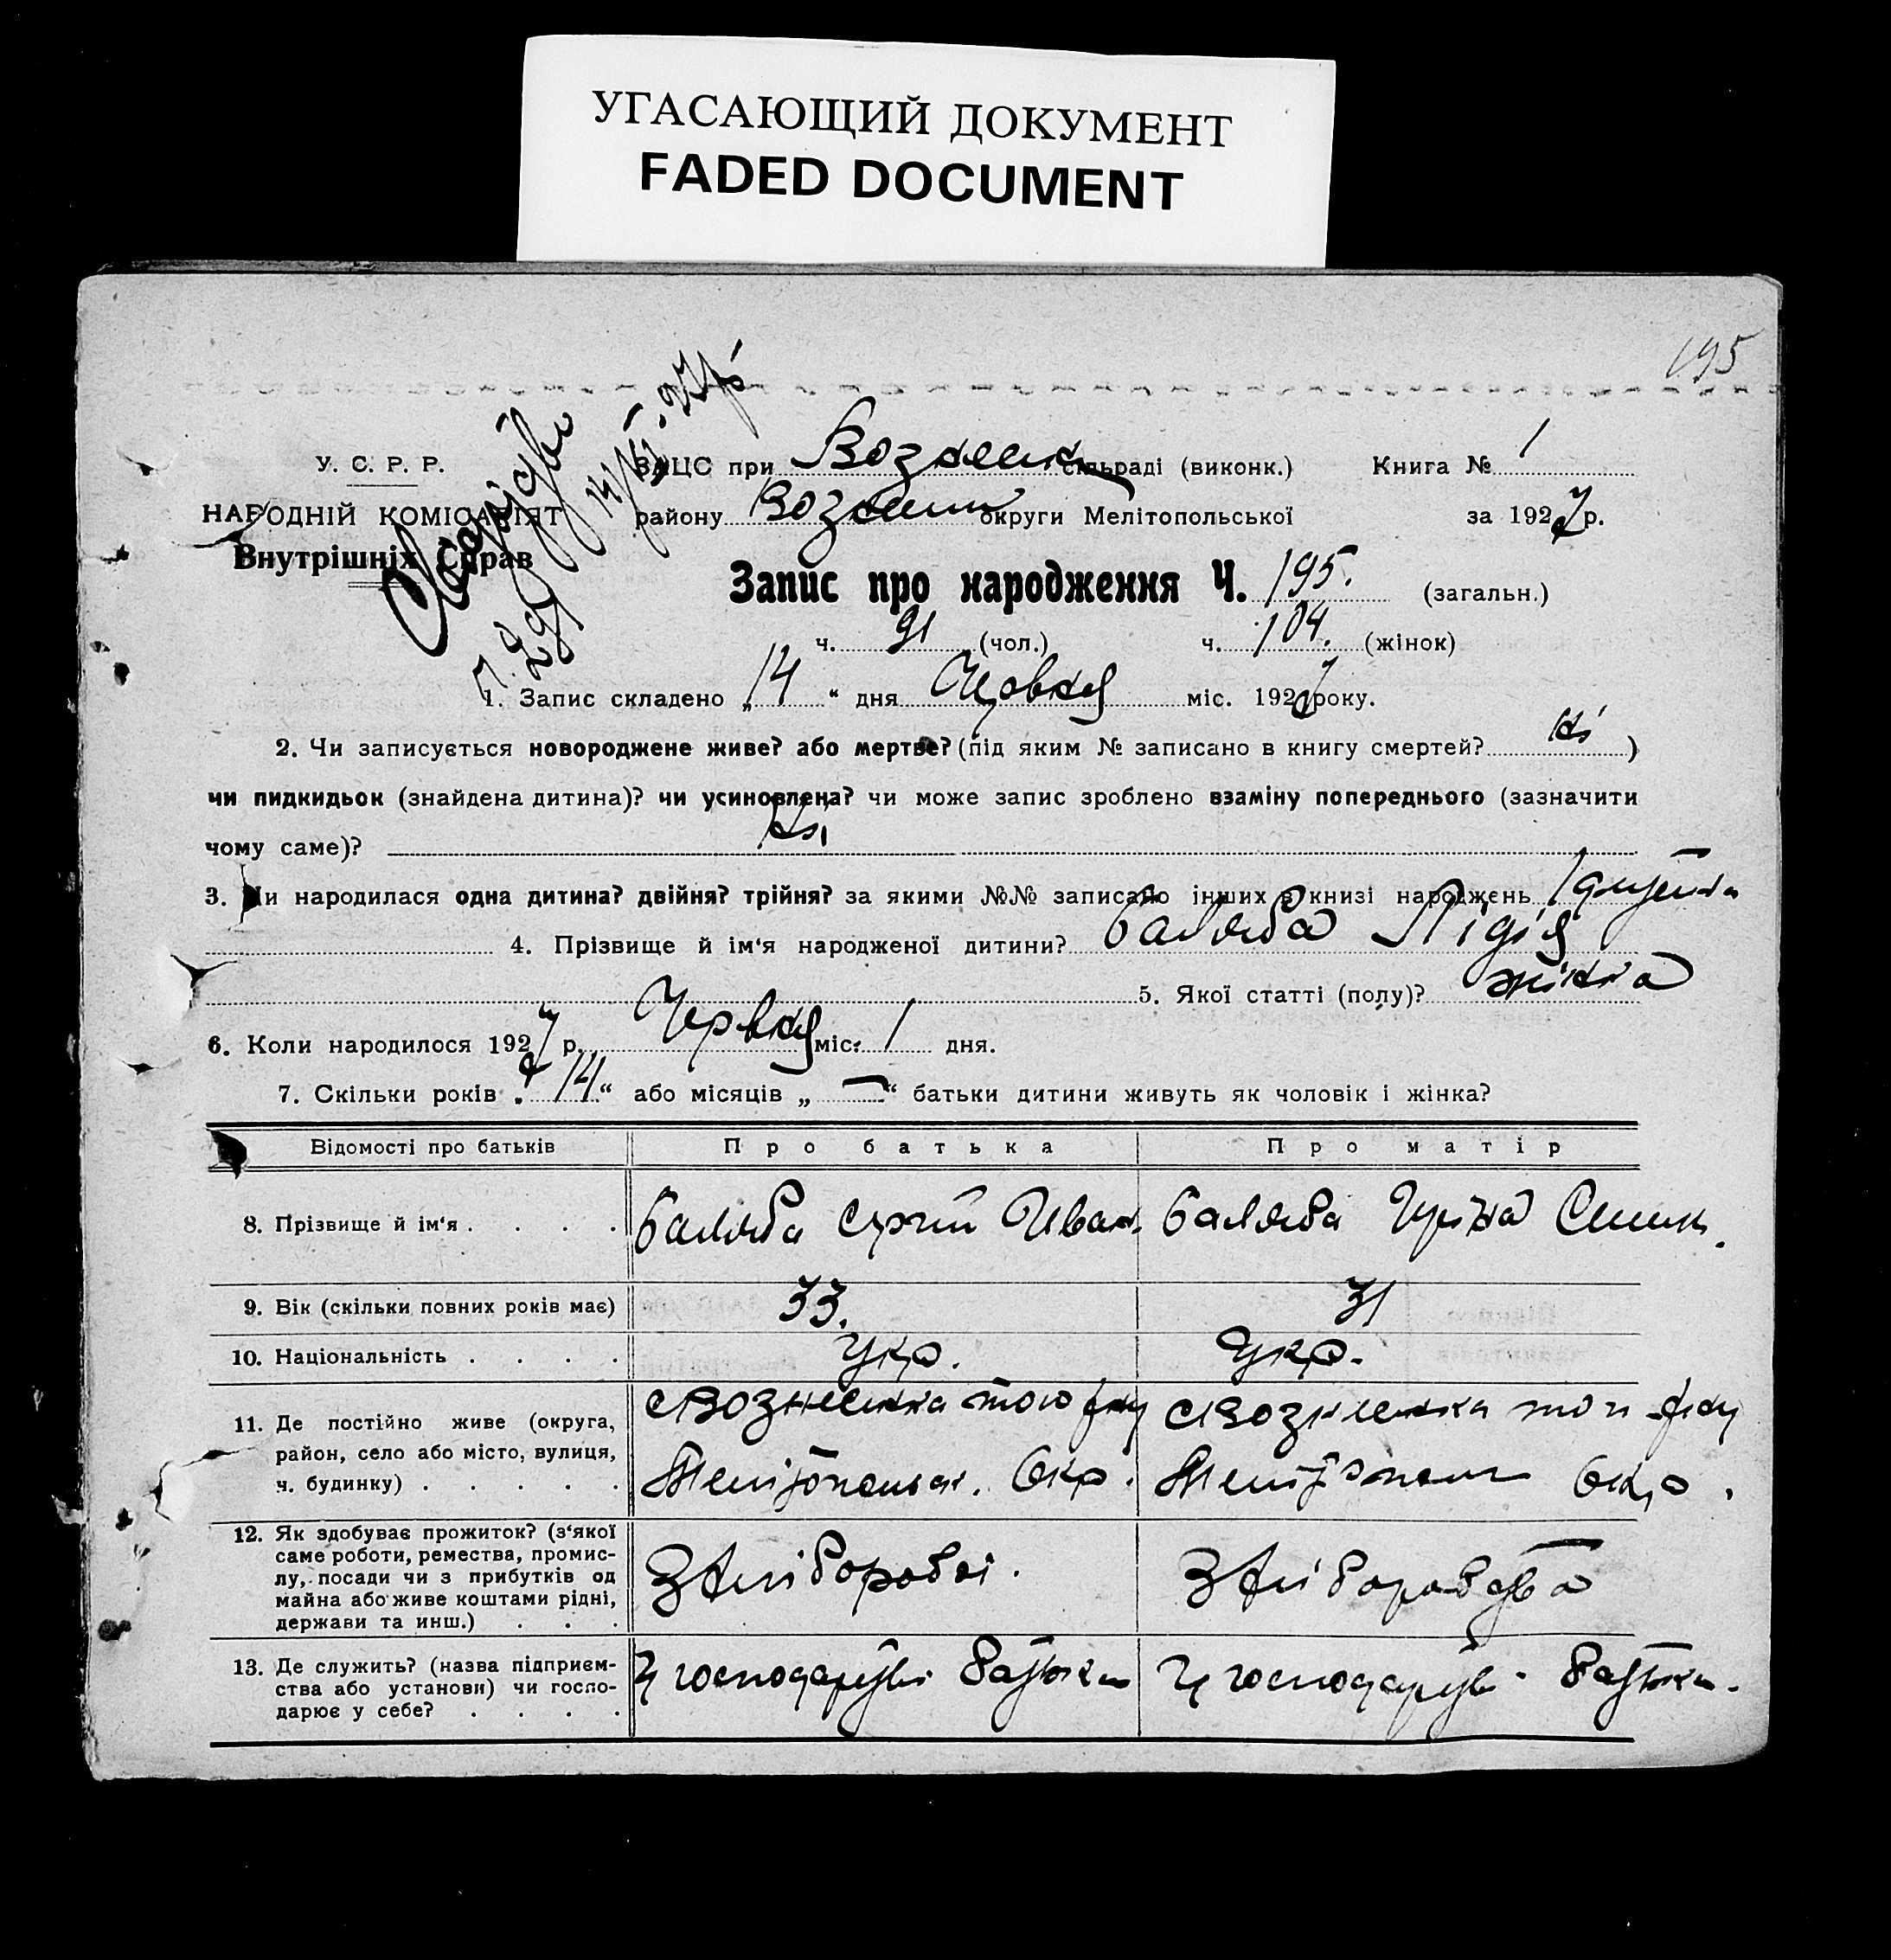 УГАСАЮЩИЙ ДОКУМЕНТ
FADED DOCUMENT
195
У. С. Р. Р.
НАРОДНІЙ КОМІСАРІЯТ
Внутрішніх Справ
ЗАЦС при Вознесен сільраді (виконк.) Книга № 1
району Вознесен округи Мелітопольської за 1927 р.
Запис про народження Ч. 195. (загальн.)
ч. 91 (чол.) ч. 104. (жінок)
1. Запис складено „14“ дня Червня міс. 1927 року.
2. Чи записується новороджене живе? або мертве? (під яким № записано в книгу смертей? Ні)
чи пидкидьок (знайдена дитина)? чи усиновлена? чи може запис зроблено взаміну попереднього (зазначити
чому саме)? Ні
3. Чи народилася одна дитина? двійня? трійня? за якими №№ записано інших в книзі народжень 1
4. Прізвище й ім‘я народженої дитини? Балюба Лідія
5. Якої статті (полу)? жінка
6. Коли народилося 1927 р. Червня міс. 1 дня.
7. Скільки років „14“ або місяців „—“ батьки дитини живуть як чоловік і жінка?
Відомості про батьків Про батька Про матір
8. Прізвище й ім‘я . . . . Балюба Сергій Иван. Балюба Ирина Семен.
9. Вік (скільки повних років має) 33. 31
10. Національність . . . . Укр. Укр.
11. Де постійно живе (округа,
район, село або місто, вулиця,
ч. будинку) . . . . .
с Вознесенка того р-ну
Мелітопольськ. Окр.
с Вознесенка того р-ну
Мелітопол Окр.
12. Як здобуває прожиток? (з‘якої
саме роботи, ремества, промис-
лу, посади чи з прибутків од
майна або живе коштами рідні,
держави та инш.) . . .
Хлібороб
Хлібороб
13. Де служить? (назва підприєм-
ства або установи) чи госпо-
дарює у себе? . . . .
У господарстві батька
У господарстві батька.